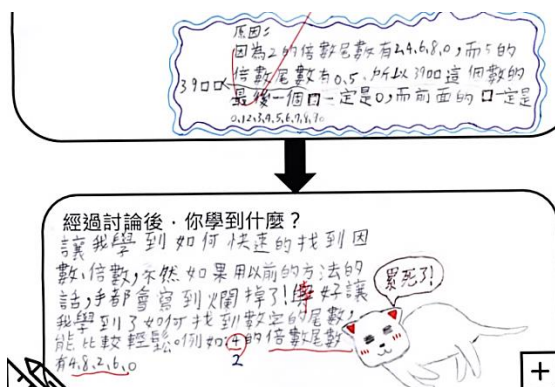 原因:
因為2的倍數尾數有2,4,6,8,0,而5的
倍數尾數有0.5.所以39口口這個數的
39口口
最後一個口一定是0,而前面的口一定是
0,1,2,3,4,5,6,7,8,9。
經過討論後,你學到什麼?
讓我學到如何快速的找到因
數、倍數,不然如果用以前的方法的
話,手都會寫到爛掉了!幸好讓
我學到了如何找到數字的尾數,
能比較輕鬆。例如④的倍數尾數
2
有4,8,2,6,0
累死了!